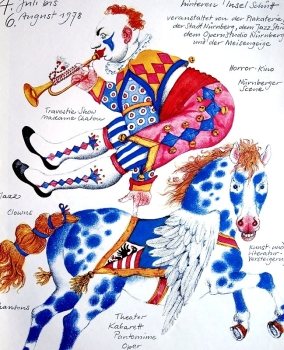 4. Juli bis
6. August 1978
hinteren Insel Schütt
veranstaltet von der Plakaterie,
der Stadt Nürnberg, dem Jazz Stu
dem Opernstudio Nürnberg
und der Meisengeige
Horror-Kino
Nürnberger
Scene
Travestie Show
madame Chatou
Clowns
Kunst- und
Literatur-
Versteigerun
Theater
Kabarett
Pantomime
Oper